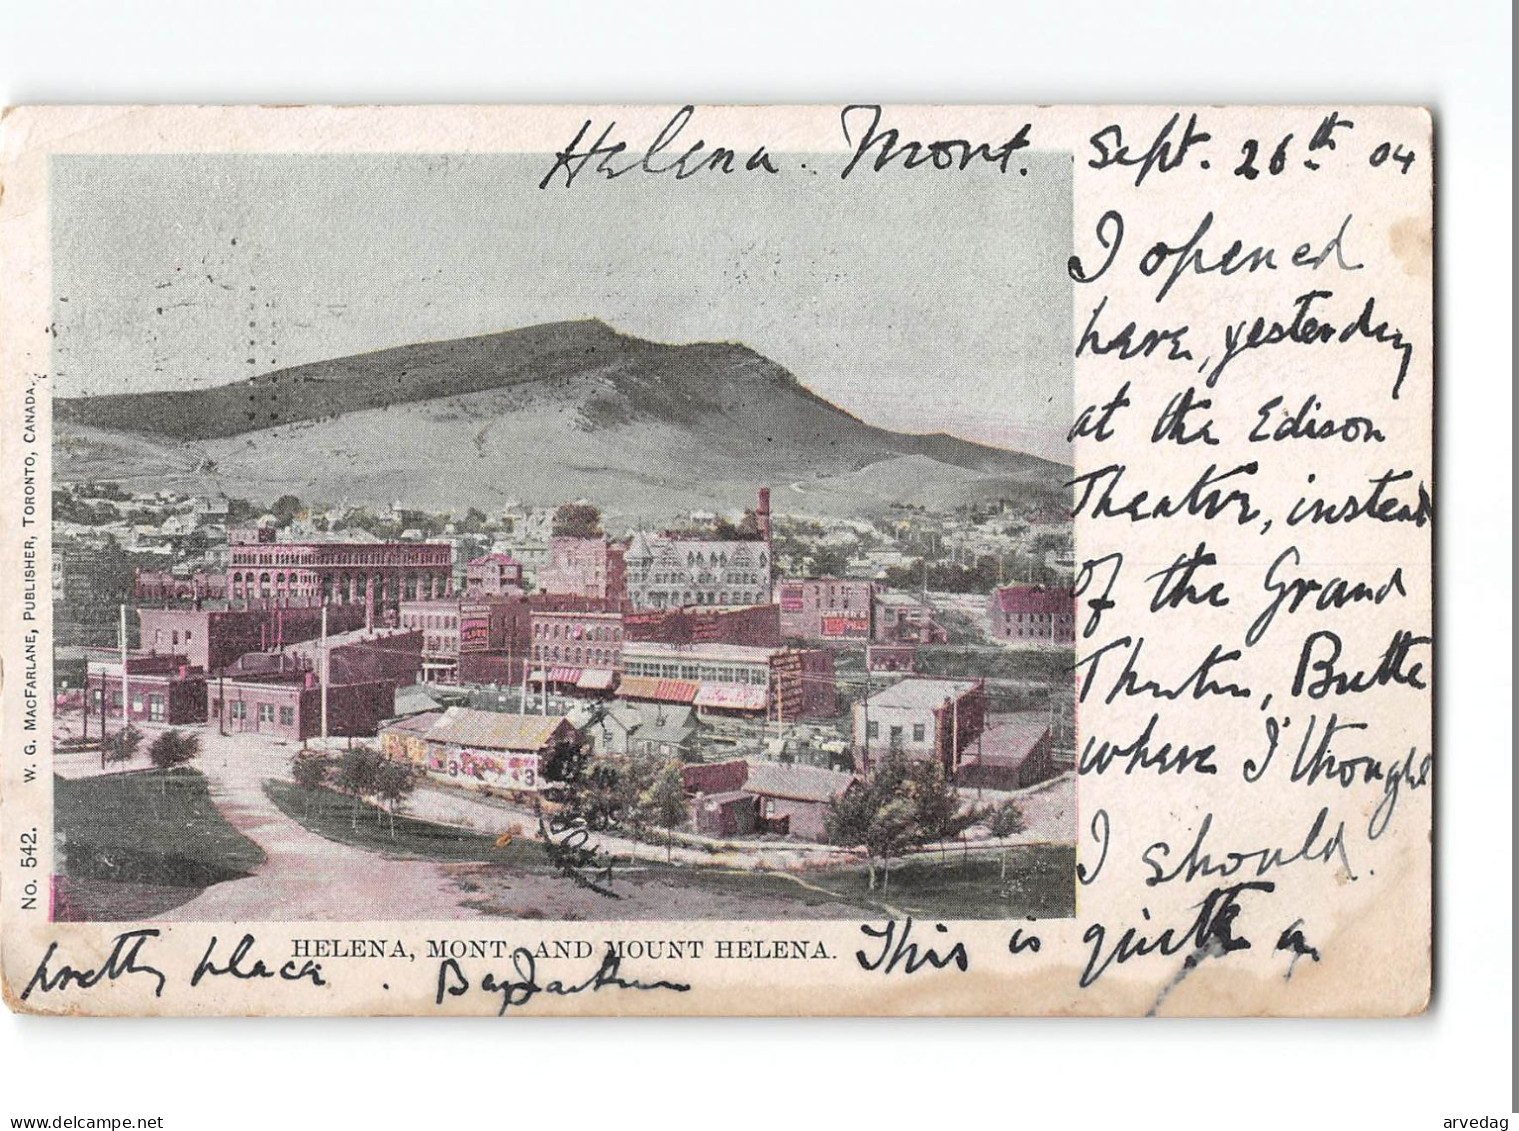 Helena. Mont. Sept. 26th 04
I opened
here, yesterday
at the Edison
Theater, instead
of the Grand
Theater, Butte
where I thought
I should.
This is quite a
pretty place.
HELENA, MONT. AND MOUNT HELENA.
No. 542. W. G. MACFARLANE, PUBLISHER, TORONTO, CANADA.
delcampe.net
arvedag